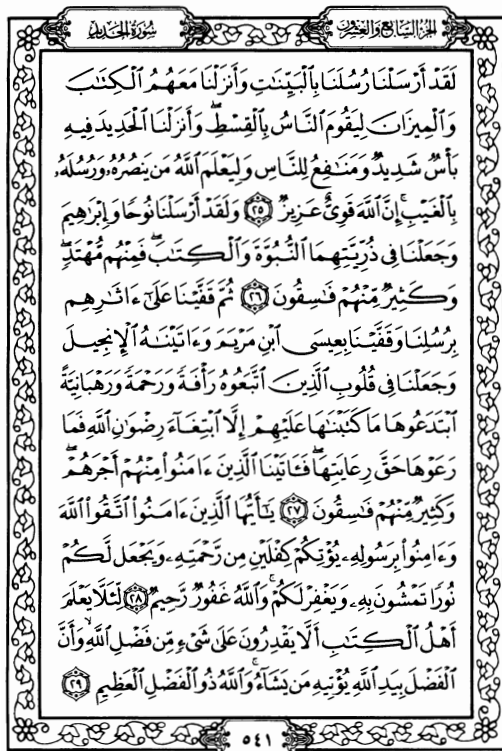 سُورَةُ الحَدِيدِ الجُزْءُ السَّابِعُ وَالعِشْرُونَ
لَقَدْ أَرْسَلْنَا رُسُلَنَا بِالْبَيِّنَٰتِ وَأَنزَلْنَا مَعَهُمُ الْكِتَٰبَ
وَالْمِيزَانَ لِيَقُومَ النَّاسُ بِالْقِسْطِۖ وَأَنزَلْنَا الْحَدِيدَ فِيهِ
بَأْسٌ شَدِيدٌ وَمَنَٰفِعُ لِلنَّاسِ وَلِيَعْلَمَ اللَّهُ مَن يَنصُرُهُۥ وَرُسُلَهُۥ
بِالْغَيْبِۚ إِنَّ اللَّهَ قَوِىٌّ عَزِيزٌ ٢٥ وَلَقَدْ أَرْسَلْنَا نُوحًا وَإِبْرَٰهِيمَ
وَجَعَلْنَا فِى ذُرِّيَّتِهِمَا النُّبُوَّةَ وَالْكِتَٰبَۖ فَمِنْهُم مُّهْتَدٍۖ
وَكَثِيرٌ مِّنْهُمْ فَٰسِقُونَ ٢٦ ثُمَّ قَفَّيْنَا عَلَىٰٓ ءَاثَٰرِهِم
بِرُسُلِنَا وَقَفَّيْنَا بِعِيسَى ابْنِ مَرْيَمَ وَءَاتَيْنَٰهُ الْإِنجِيلَ
وَجَعَلْنَا فِى قُلُوبِ الَّذِينَ اتَّبَعُوهُ رَأْفَةً وَرَحْمَةً وَرَهْبَانِيَّةً
ابْتَدَعُوهَا مَا كَتَبْنَٰهَا عَلَيْهِمْ إِلَّا ابْتِغَآءَ رِضْوَٰنِ اللَّهِ فَمَا
رَعَوْهَا حَقَّ رِعَايَتِهَاۖ فَـَٔاتَيْنَا الَّذِينَ ءَامَنُوا۟ مِنْهُمْ أَجْرَهُمْۖ
وَكَثِيرٌ مِّنْهُمْ فَٰسِقُونَ ٢٧ يَٰٓأَيُّهَا الَّذِينَ ءَامَنُوا۟ اتَّقُوا۟ اللَّهَ
وَءَامِنُوا۟ بِرَسُولِهِۦ يُؤْتِكُمْ كِفْلَيْنِ مِن رَّحْمَتِهِۦ وَيَجْعَل لَّكُمْ
نُورًا تَمْشُونَ بِهِۦ وَيَغْفِرْ لَكُمْۚ وَاللَّهُ غَفُورٌ رَّحِيمٌ ٢٨ لِّئَلَّا يَعْلَمَ
أَهْلُ الْكِتَٰبِ أَلَّا يَقْدِرُونَ عَلَىٰ شَىْءٍ مِّن فَضْلِ اللَّهِۙ وَأَنَّ
الْفَضْلَ بِيَدِ اللَّهِ يُؤْتِيهِ مَن يَشَآءُۚ وَاللَّهُ ذُو الْفَضْلِ الْعَظِيمِ ٢٩
٥٤١